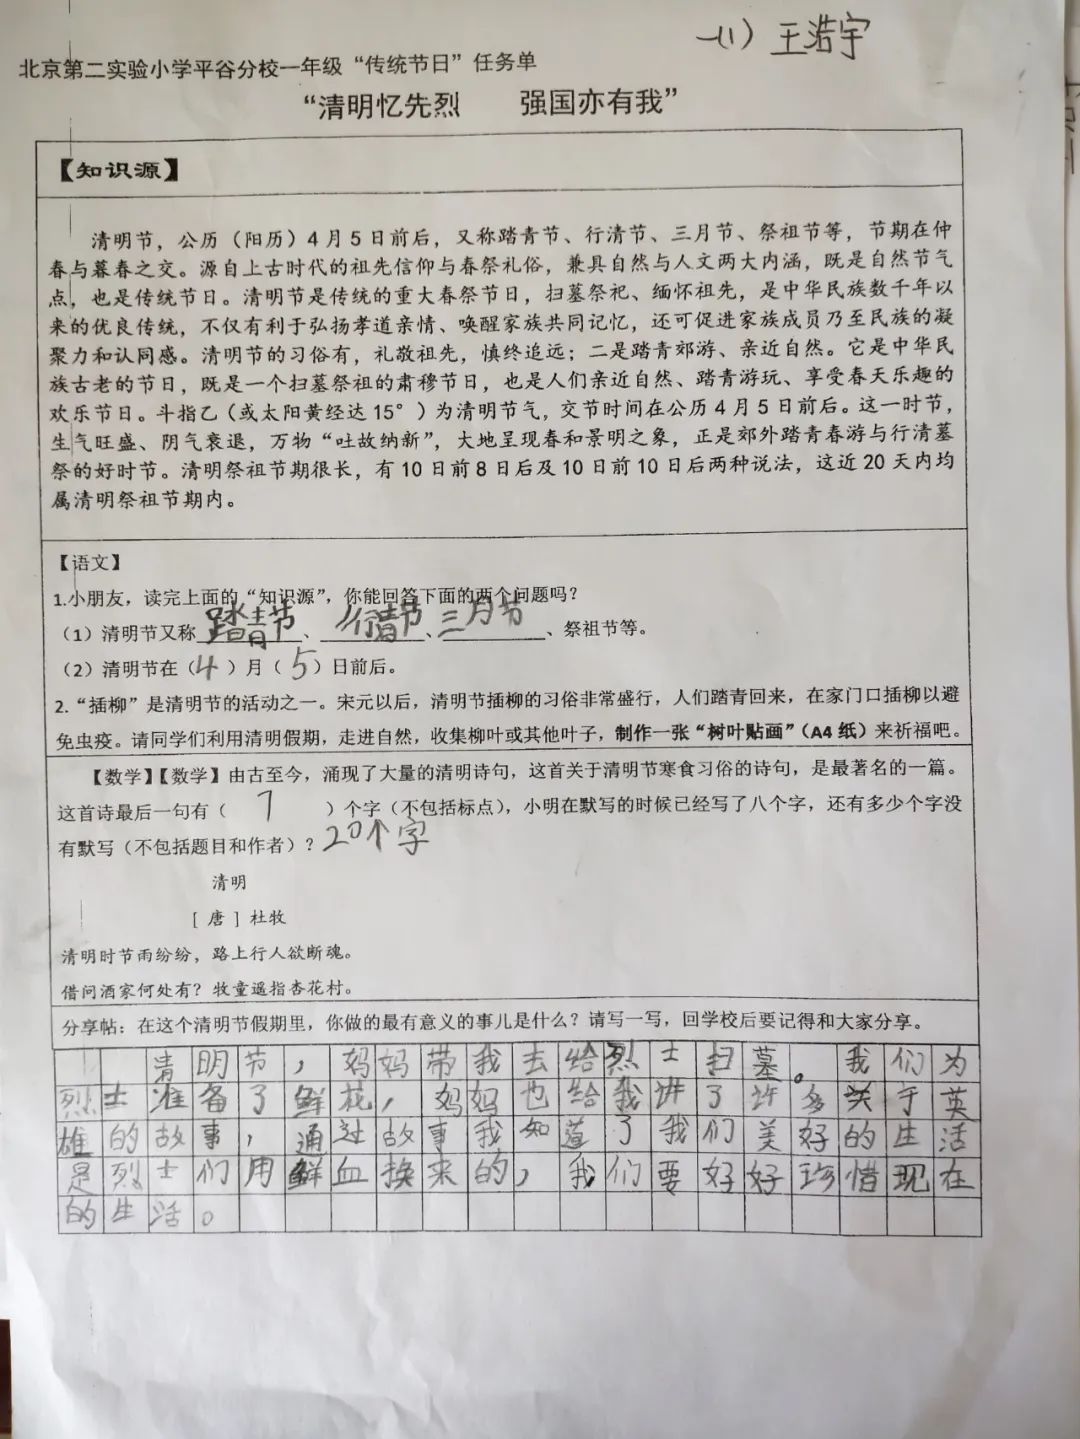 一(1) 王浩宇
北京第二实验小学平谷分校一年级“传统节日”任务单
“清明忆先烈 强国亦有我”
【知识源】
清明节，公历（阳历）4月5日前后，又称踏青节、行清节、三月节、祭祖节等，节期在仲
春与暮春之交。源自上古时代的祖先信仰与春祭礼俗，兼具自然与人文两大内涵，既是自然节气
点，也是传统节日。清明节是传统的重大春祭节日，扫墓祭祀、缅怀祖先，是中华民族数千年以
来的优良传统，不仅有利于弘扬孝道亲情、唤醒家族共同记忆，还可促进家族成员乃至民族的凝
聚力和认同感。清明节的习俗有，礼敬祖先，慎终追远；二是踏青郊游、亲近自然。它是中华民
族古老的节日，既是一个扫墓祭祖的肃穆节日，也是人们亲近自然、踏青游玩、享受春天乐趣的
欢乐节日。斗指乙（或太阳黄经达15°）为清明节气，交节时间在公历4月5日前后。这一时节，
生气旺盛、阴气衰退，万物“吐故纳新”，大地呈现春和景明之象，正是郊外踏青春游与行清墓
祭的好时节。清明祭祖节期很长，有10日前8日后及10日前10日后两种说法，这近20天内均
属清明祭祖节期内。
【语文】
1.小朋友，读完上面的“知识源”，你能回答下面的两个问题吗？
（1）清明节又称 踏青节、行清节、三月节、祭祖节等。
（2）清明节在（4）月（5）日前后。
2.“插柳”是清明节的活动之一。宋元以后，清明节插柳的习俗非常盛行，人们踏青回来，在家门口插柳以避
免虫疫。请同学们利用清明假期，走进自然，收集柳叶或其他叶子，制作一张“树叶贴画”（A4纸）来祈福吧。
【数学】【数学】由古至今，涌现了大量的清明诗句，这首关于清明节寒食习俗的诗句，是最著名的一篇。
这首诗最后一句有（ 7 ）个字（不包括标点），小明在默写的时候已经写了八个字，还有多少个字没
有默写（不包括题目和作者）？20个字
清明
［唐］杜牧
清明时节雨纷纷，路上行人欲断魂。
借问酒家何处有？牧童遥指杏花村。
分享帖：在这个清明节假期里，你做的最有意义的事儿是什么？请写一写，回学校后要记得和大家分享。
清明节，妈妈带我去给烈士扫墓。我们为
烈士准备了鲜花，妈妈也给我讲了许多关于英
雄的故事，通过故事我知道了我们美好的生活
是烈士们用鲜血换来的，我们要好好珍惜现在
的生活。